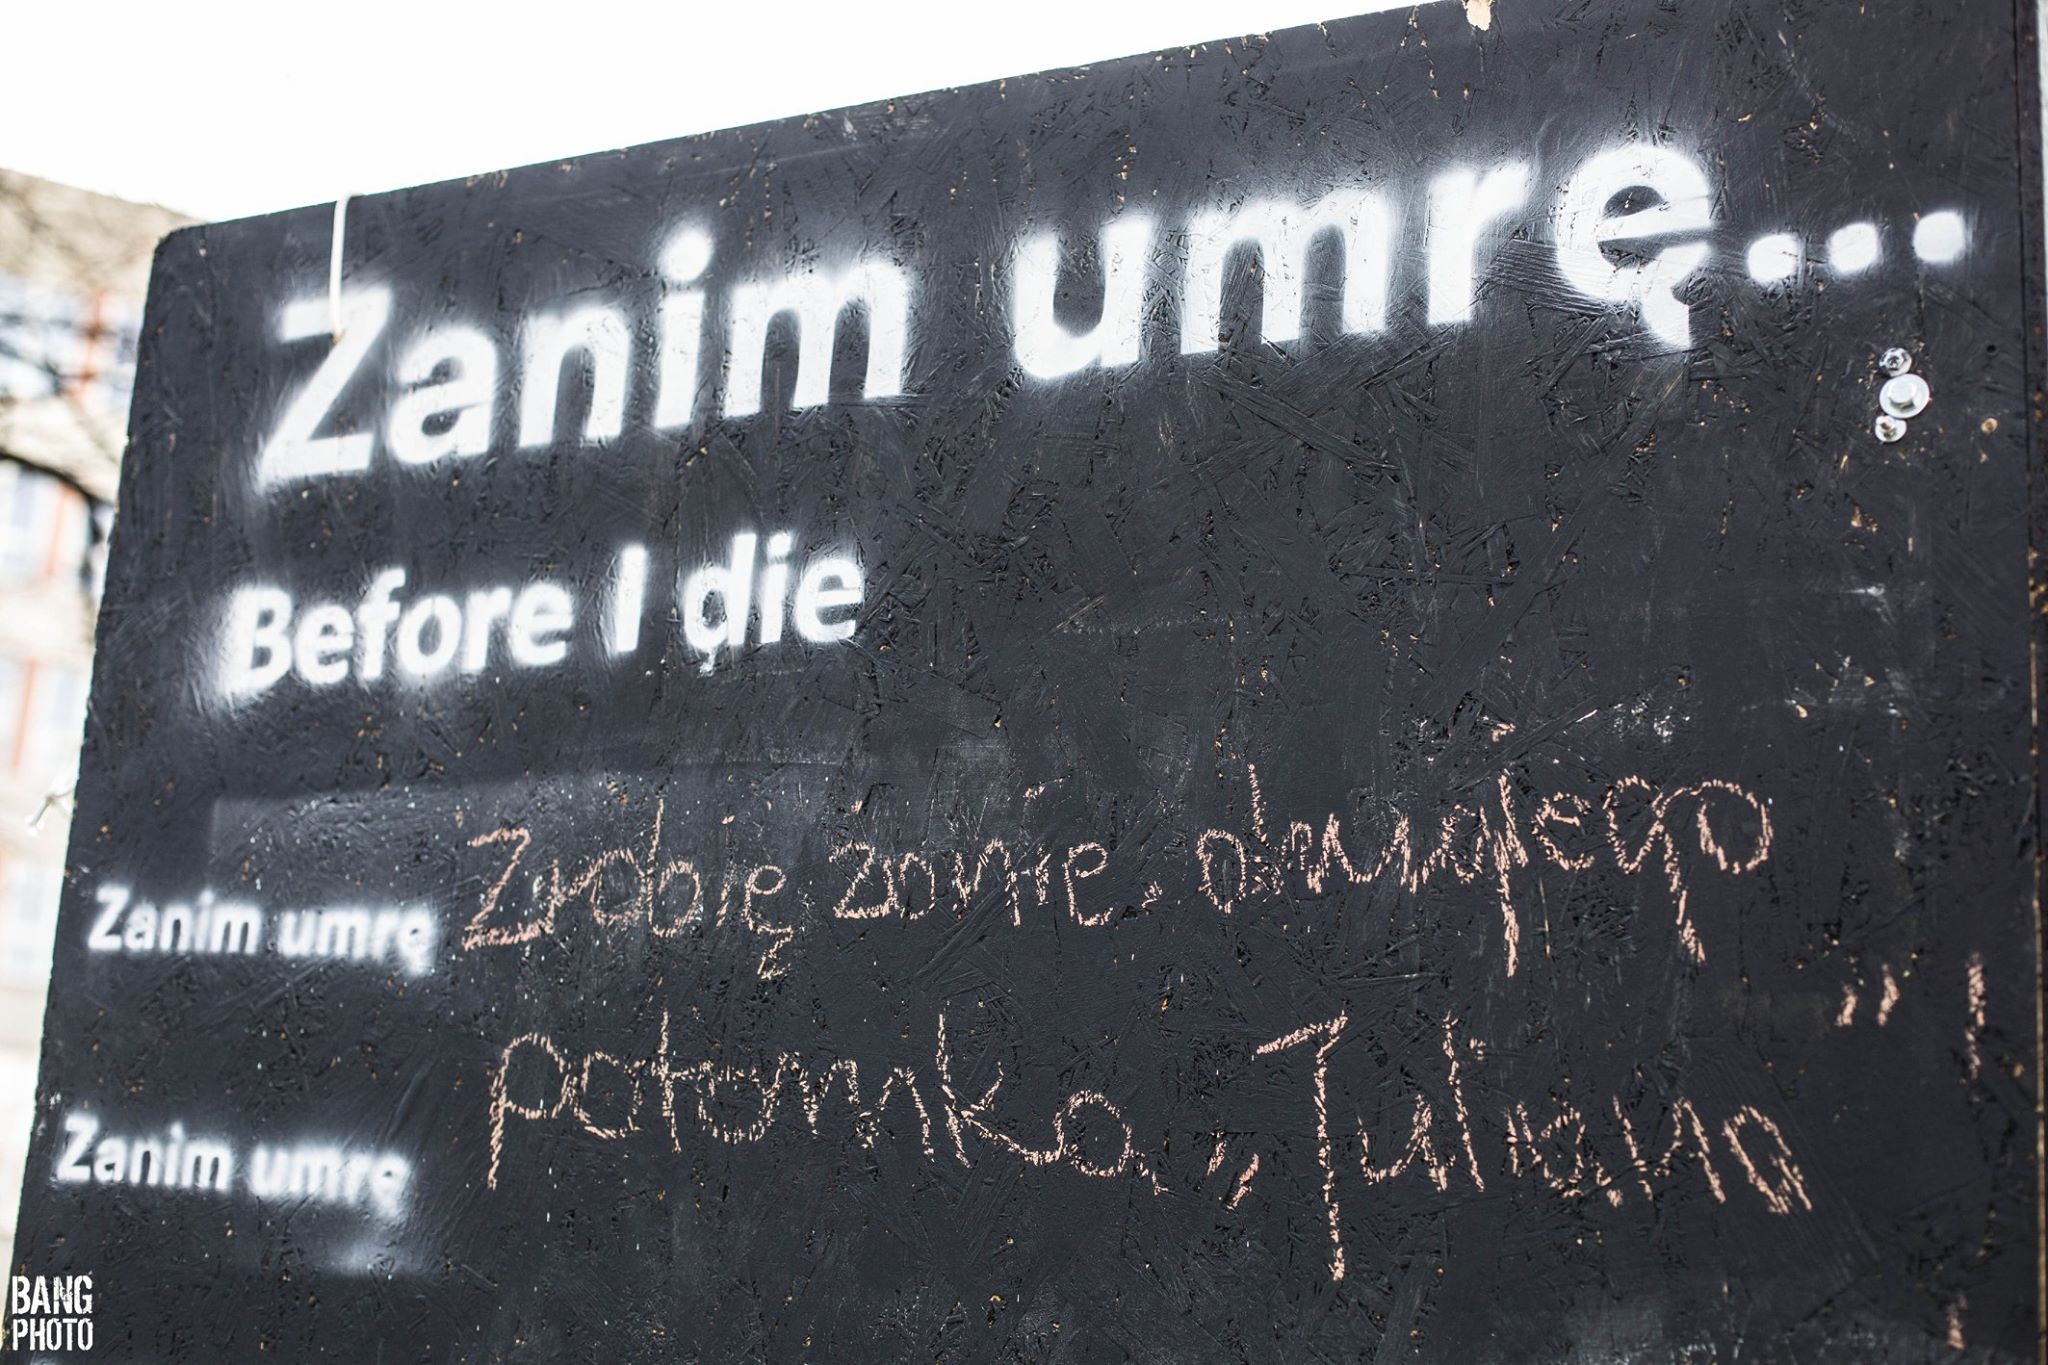 Zanim umrę...
Before I die
Zanim umrę Zrobię żonie, drugiego
Zanim umrę potomka, „Juliana”!
BANG
PHOTO